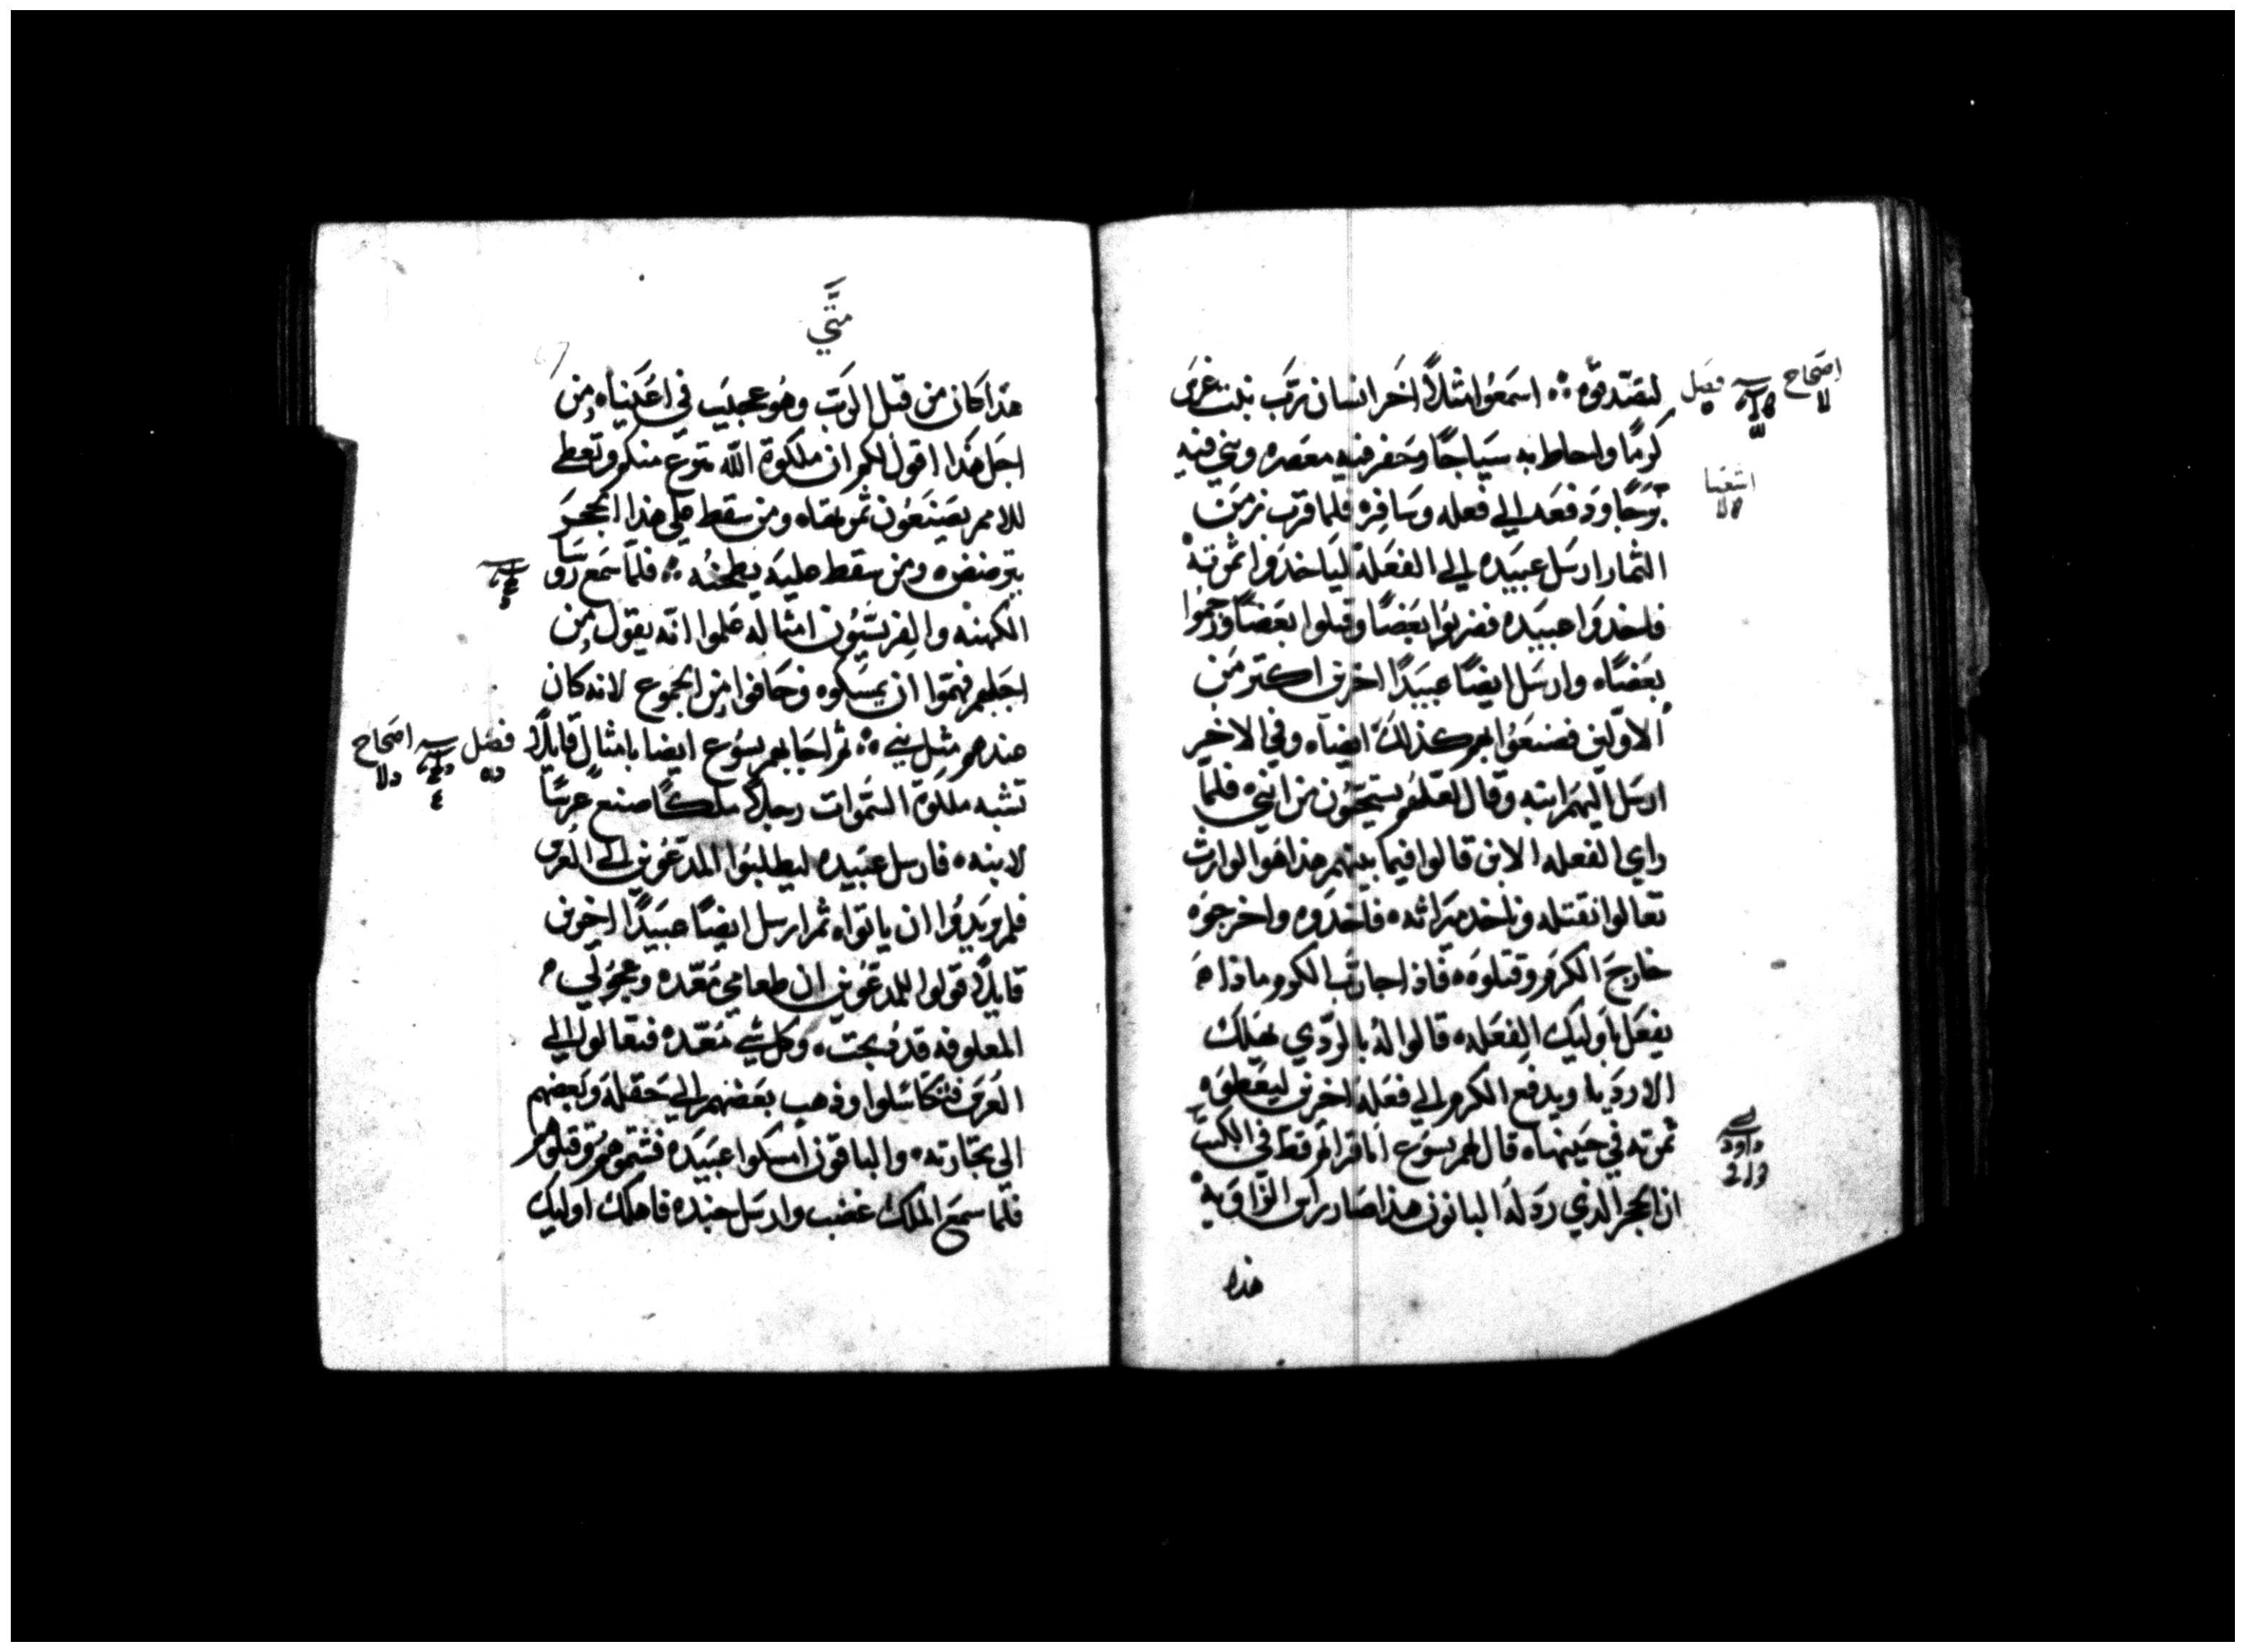 لتصدقوه ⁘ اسمعوا مثلاً اخر انسان ترتب بيت غرس
كرمًا واحاط به سياجًا وحفر فيه معصره وبني فيه
برجًا ودفعه الي فعله وسافر ه فلما قرب زمن
الثمار ارسل عبيده الي الفعلة لياخذوا ثمرته
فاخدوا عبيده فضربوا بعضًا وقتلوا بعضًا ورجموا
بعضًا ه وارسل ايضًا عبيدًا اخرين اكتر من
الاولين فصنعوا بهم كذلك ايضًا ه وفي الاخير
ارسل اليهم ابنه وقال لعلهم يستحيون من ابني ه فلما
راي الفعله الابن قالوا فيما بينهم هذا هو الوارث
تعالوا نقتله وناخد ميراثه ه فاخدوه واخرجوه
خارج الكرم وقتلوه ه فاذا جا رب الكرم ماذا
يفعل باوليك الفعله ه قالوا له بالردي يهلك
الارديا ويدفع الكرم الي فعلة اخرين ليعطوه
ثمرته في حينها ه قال لهم يسوع اما قراتم قط في الكتب
ان الحجر الذي رذله البانون هذا صار راس الزاوية
هذا
اصحاح
فصل
اشعيا
داود
متي
هذا كان من قبل الرب وهو عجيب في اعيننا ه من
اجل هذا اقول لكم ان ملكوة الله تنزع منكم وتعطي
للامم يصنعون ثمرتها ه ومن سقط علي هذا الحجر
يترضض ه ومن سقط عليه يطحنه ⁘ فلما سمع روسا
الكهنه والفريسيون امثاله علموا انه يقول من
اجلهم فهموا ان يمسكوه وخافوا من الجموع لانه كان
عندهم مثل نبي ⁘ ثم اجابهم يسوع ايضا بامثال قايلاً
تشبه ملكوة السموات رجلاً ملكًا صنع عرسًا
لابنه ه فارسل عبيده ليطلبوا المدعوين الي العرس
فلم يريدوا ان ياتوا ه ثم ارسل ايضًا عبيدًا اخرين
قايلاً قولوا للمدعوين ان طعامي معده وعجولي
المعلوفه قد ذبحت ه وكل شي معده فتعالوا الي
العرس فتكاسلوا وذهب بعضهم الي حقله وبعضهم
الي تجارته ه والباقون امسكوا عبيده فشتموهم وقتلوهم
فلما سمع الملك غضب وارسل جنده فاهلك اوليك
فصل
اصحاح